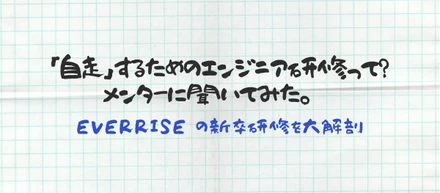 「自走」するためのエンジニア研修って?
メンターに聞いてみた。
EVERRISE の新卒研修を大解剖